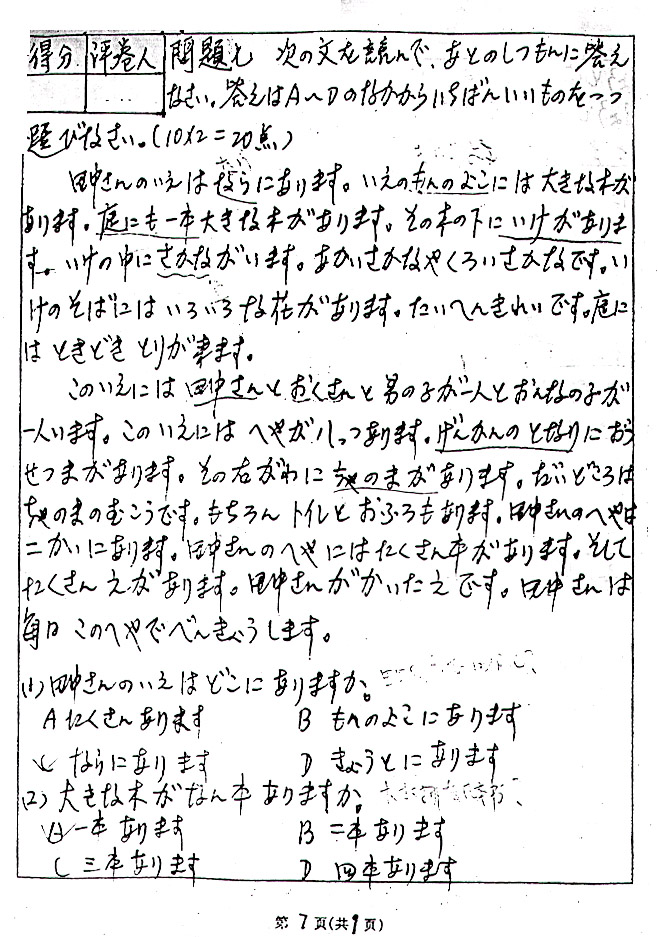 得分 评卷人 問題七 次の文を読んで、あとのしつもんに答え
なさい。答えはA～Dのなかからいちばんいいものを一つ
選びなさい。(10×2=20点)
田中さんのいえはならにあります。いえのもんのよこには大きな木が
あります。庭にも一本大きな木があります。その木の下にいけがありま
す。いけの中にさかながいます。あかいさかなやくろいさかなです。い
けのそばにはいろいろな花があります。たいへんきれいです。庭に
はときどきとりが来ます。
このいえには田中さんとおくさんと男の子が一人とおんなの子が
一人います。このいえにはへやが八つあります。げんかんのとなりにおう
せつまがあります。その右がわにちゃのまがあります。だいどころは
ちゃのまのむこうです。もちろんトイレとおふろもあります。田中さんのへやは
二かいにあります。田中さんのへやにはたくさん本があります。そして
たくさんえがあります。田中さんがかいたえです。田中さんは
毎日このへやでべんきょうします。
(1)田中さんのいえはどこにありますか。
A たくさんあります B もんのよこにあります
C ならにあります D きょうとにあります
(2)大きな木がなん本ありますか。
A 一本あります B 二本あります
C 三本あります D 四本あります
第 7 页(共 9 页)